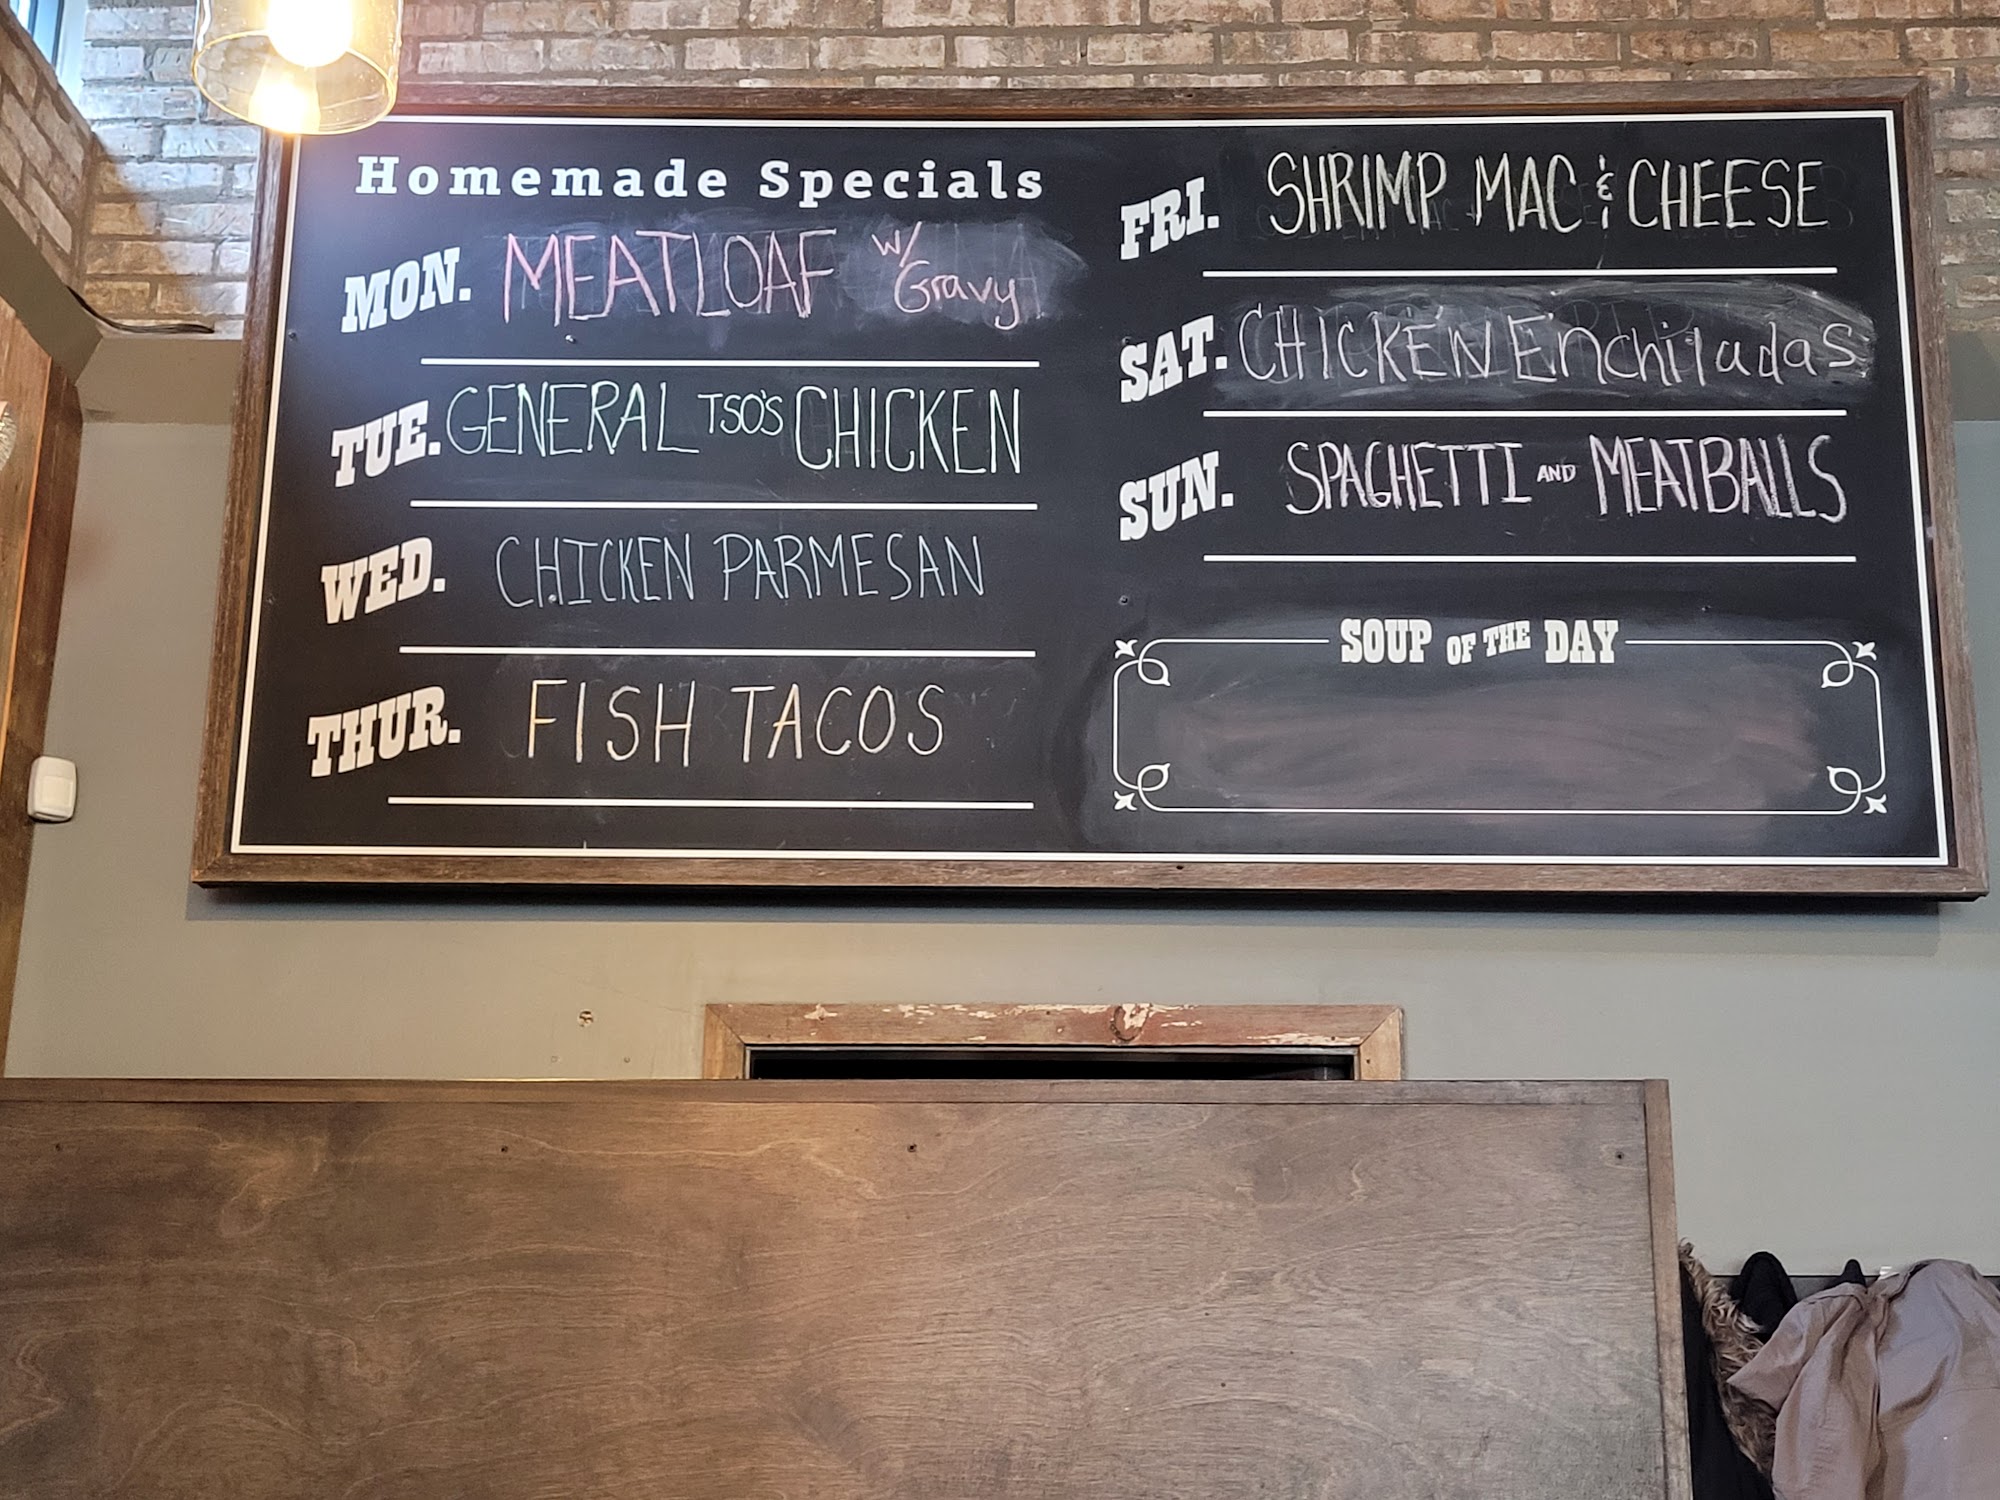 Homemade Specials
MON. MEATLOAF w/ Gravy
TUE. GENERAL TSO'S CHICKEN
WED. CHICKEN PARMESAN
THUR. FISH TACOS
FRI. SHRIMP MAC & CHEESE
SAT. CHICKEN Enchiladas
SUN. SPAGHETTI AND MEATBALLS
SOUP OF THE DAY